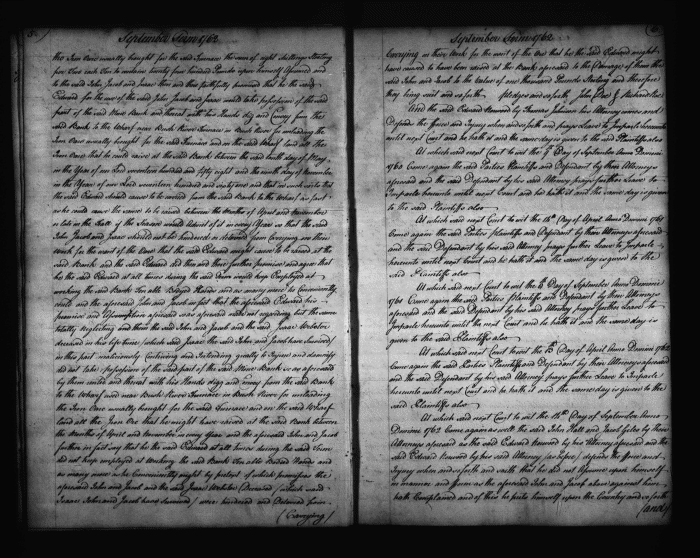 September Term 1762
the Iron Oare usually bought for the said Furnace the sum of eight shillings Sterling
for Two each Ton to contain twenty four hundred Pounds upon himself Assumed and
to the said John Jacob and Isaac then and there faithfully promised that he the said
Edward for the use of the said John Jacob and Isaac would take possession of the said
part of the said Mine Bank and thereat with his Hands dig and convey from the
said Bank to the Wharf near Bush River Furnace in Bush River for unloading the
Iron Oare usually bought for the said Furnace and on the said Wharf land all the
Iron Oare that he could raise at the said Bank between the said tenth day of May
in the Year of our Lord seventeen hundred and fifty eight and the ninth day of November
in the Year of our Lord seventeen hundred and sixty one and that in such case that the
said Edward should cause to be carried from the said Bank to the Wharf as fast
as he could raise the same to be raised between the Months of April and November
so late in the Fall of the Season would admit of it in every Year so that the said
John Jacob and Isaac should not be hindered or detained from Carrying on their
work for the want of the Oare that the said Edward could cause to be raised at the
said Bank and the said Edward did then and there further promise and agree that
he the said Edward at all times during the said Term would keep Employed at
working the said Bank Ten able Bodied Hands and as many more as Conveniently
could and the aforesaid John and Jacob in fact say that the aforesaid Edward his
promises and Assumptions aforesaid so as aforesaid made not regarding but the same
totally neglecting and them the said John and Jacob and the said Isaac Webster
deceased in his life time (which said Isaac the said John and Jacob have survived)
in this part maliciously Contriving and Intending greatly to Injure and damnify
did not take possession of the said part of the said Mine Bank so as aforesaid
by them rented and thereat with his Hands digg and convey from the said Bank
to the Wharf used near Bush River Furnace in Bush River for unloading
the Iron Oare usually bought for the said Furnace and on the said Wharf
land all the Iron Oare that he might have raised at the said Bank between
the Months of April and November in every Year and the aforesaid John and Jacob
further in fact say that he the said Edward at all times during the said Term
did not keep employed at working the said Bank Ten able Bodied Hands and
as many more as he Conveniently might by pretext of which premisses the
aforesaid John and Jacob and the said Isaac Webster (Deceased) (which said
Isaac John and Jacob have survived) were hindered and Detained from
(Carrying)
September Term 1762
Carrying on their Work for the want of the Oare that he the said Edward might
have caused to have been raised at the Bank aforesaid to the Damage of them the
said John and Jacob to the value of one thousand Pounds Sterling and therefore
they bring suit and so forth Pledges and so forth John Doe & Richard Roe
And the said Edward Norwood by Thomas Johnson his Attorney comes and
Defends the Force and Injury when and so forth and prays leave to Imparle hereunto
until next Court and he hath it and the same day is given to the said Plaintiffs also
At which said next Court to wit the Day of September Anno Domini
1760 Came again the said Parties Plaintiffs and Defendant by their Attorneys
aforesaid and the said Defendant by his said Attorney prays further Leave to
Imparle hereunto until next Court and he hath it and the same day is given
to the said Plaintiffs also
At which said next Court to wit the Day of April Anno Domini 1761
Came again the said Parties Plaintiffs and Defendant by their Attorneys aforesaid
and the said Defendant by his said Attorney prays further Leave to Imparle
hereunto until next Court and he hath it and the same day is given to the
said Plaintiffs also
At which said next Court to wit the Day of September Anno Domini
1761 Came again the said Parties Plaintiffs and Defendant by their Attorneys
aforesaid and the said Defendant by his said Attorney prays further Leave to
Imparle hereunto until the next Court and he hath it and the same day is
given to the said Plaintiffs also
At which said next Court to wit the Day of April Anno Domini 1762
Came again the said Parties Plaintiffs and Defendant by their Attorneys aforesaid
and the said Defendant by his said Attorney prays further Leave to Imparle
hereunto until next Court and he hath it and the same day is given to the
said Plaintiffs also
At which said next Court to wit the Day of September Anno
Domini 1762 Came again as well the said John Hall and Jacob Giles by their
Attorneys aforesaid as the said Edward Norwood by his Attorney aforesaid and the
said Edward Norwood by his said Attorney (as before) defends the Force and
Injury when and so forth and saith that he did not Assume upon himself
in manner and Form as the aforesaid John and Jacob above against him
hath Complained and of this he puts himself upon the Country and so forth
(and)